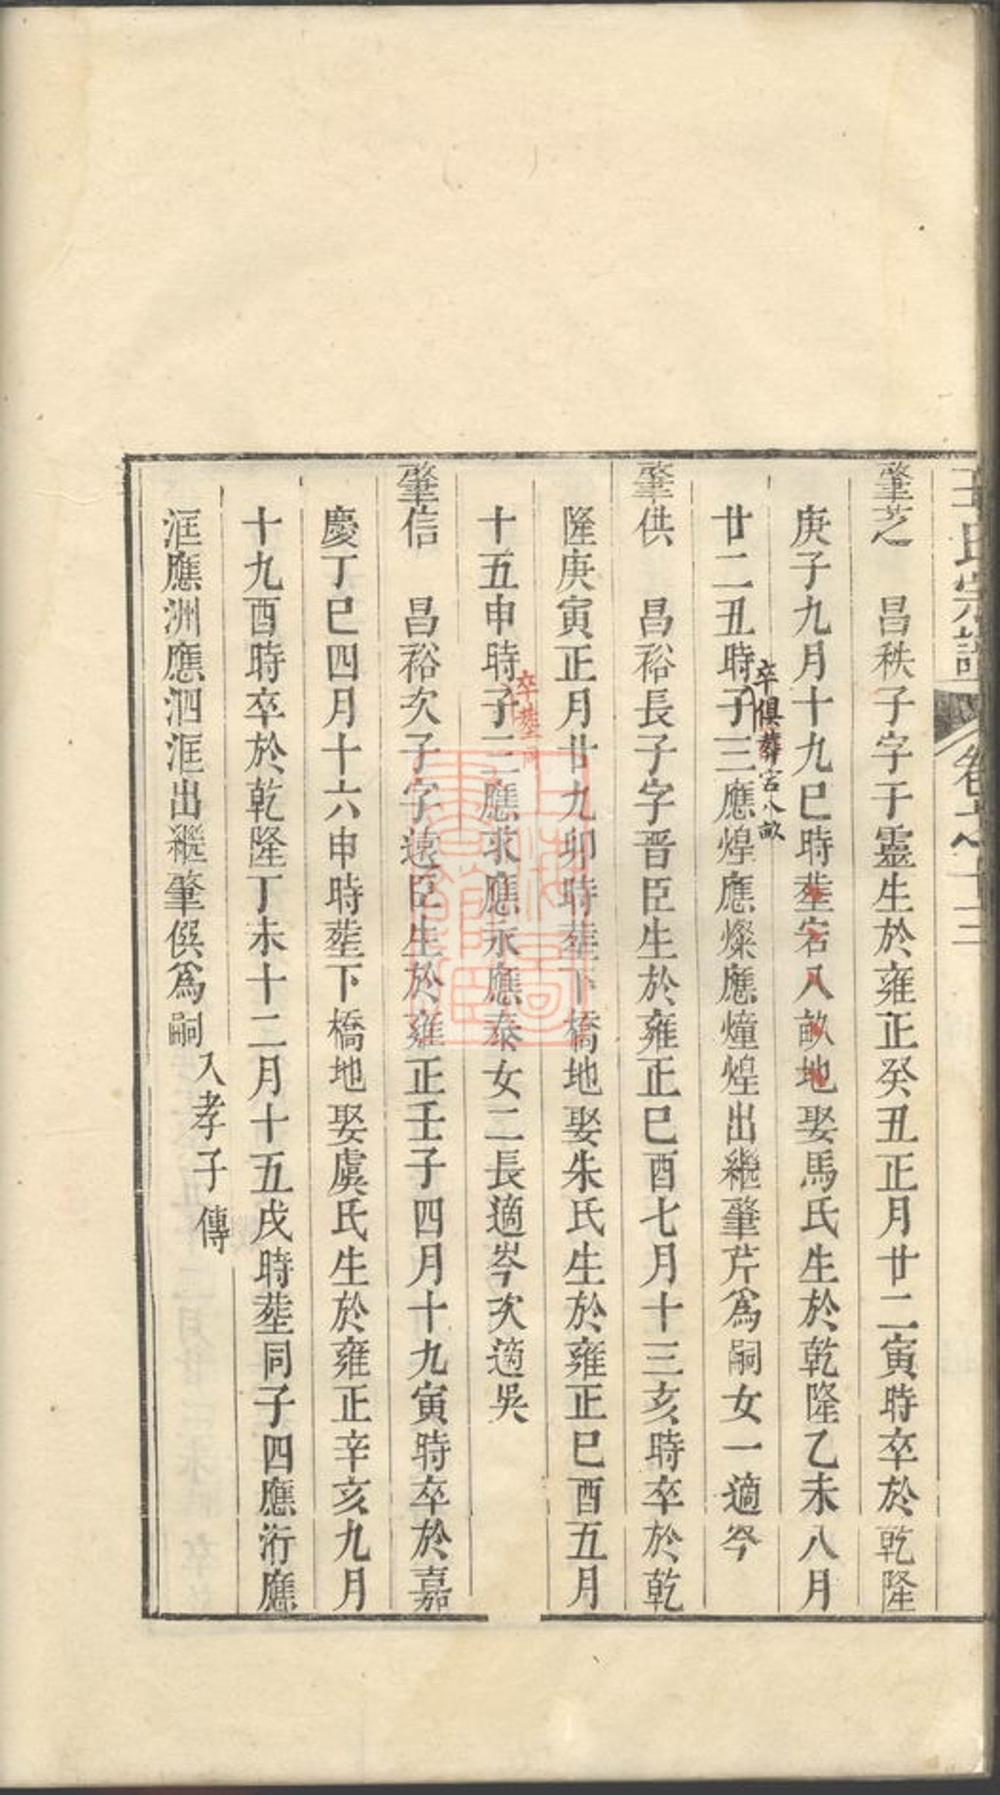 王氏宗譜 卷之十三
肇芝 昌秩子字于靈生於雍正癸丑正月廿二寅時卒於乾隆
庚子九月十九巳時塟宕八畝地娶馬氏生於乾隆乙未八月
廿二丑時子三應煌應燦應燑煌出繼肇芹爲嗣女一適岑
卒俱葬宕八畝
肇供 昌裕長子字晋臣生於雍正巳酉七月十三亥時卒於乾
隆庚寅正月廿九卯時塟下橋地娶朱氏生於雍正巳酉五月
十五申時子三應求應永應泰女二長適岑次適吳
卒塟同
肇信 昌裕次子字遠臣生於雍正壬子四月十九寅時卒於嘉
慶丁巳四月十六申時塟下橋地娶虞氏生於雍正辛亥九月
十九酉時卒於乾隆丁未十二月十五戌時塟同子四應洐應
洭應洲應泗洭出繼肇俁爲嗣
入孝子傳
上海圖書館藏